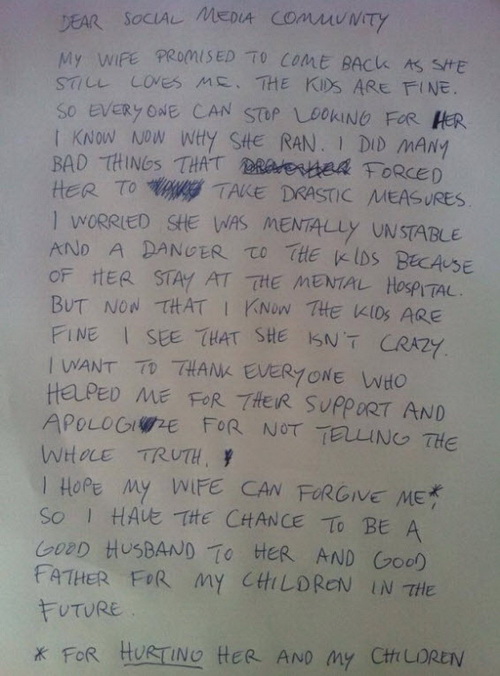 DEAR SOCIAL MEDIA COMMUNITY
MY WIFE PROMISED TO COME BACK AS SHE
STILL LOVES ME. THE KIDS ARE FINE.
SO EVERYONE CAN STOP LOOKING FOR HER
I KNOW NOW WHY SHE RAN. I DID MANY
BAD THINGS THAT FORCED
HER TO TAKE DRASTIC MEASURES.
I WORRIED SHE WAS MENTALLY UNSTABLE
AND A DANGER TO THE KIDS BECAUSE
OF HER STAY AT THE MENTAL HOSPITAL.
BUT NOW THAT I KNOW THE KIDS ARE
FINE I SEE THAT SHE ISN'T CRAZY.
I WANT TO THANK EVERYONE WHO
HELPED ME FOR THEIR SUPPORT AND
APOLOGIZE FOR NOT TELLING THE
WHOLE TRUTH.
I HOPE MY WIFE CAN FORGIVE ME*
SO I HAVE THE CHANCE TO BE A
GOOD HUSBAND TO HER AND GOOD
FATHER FOR MY CHILDREN IN THE
FUTURE.
* FOR HURTING HER AND MY CHILDREN